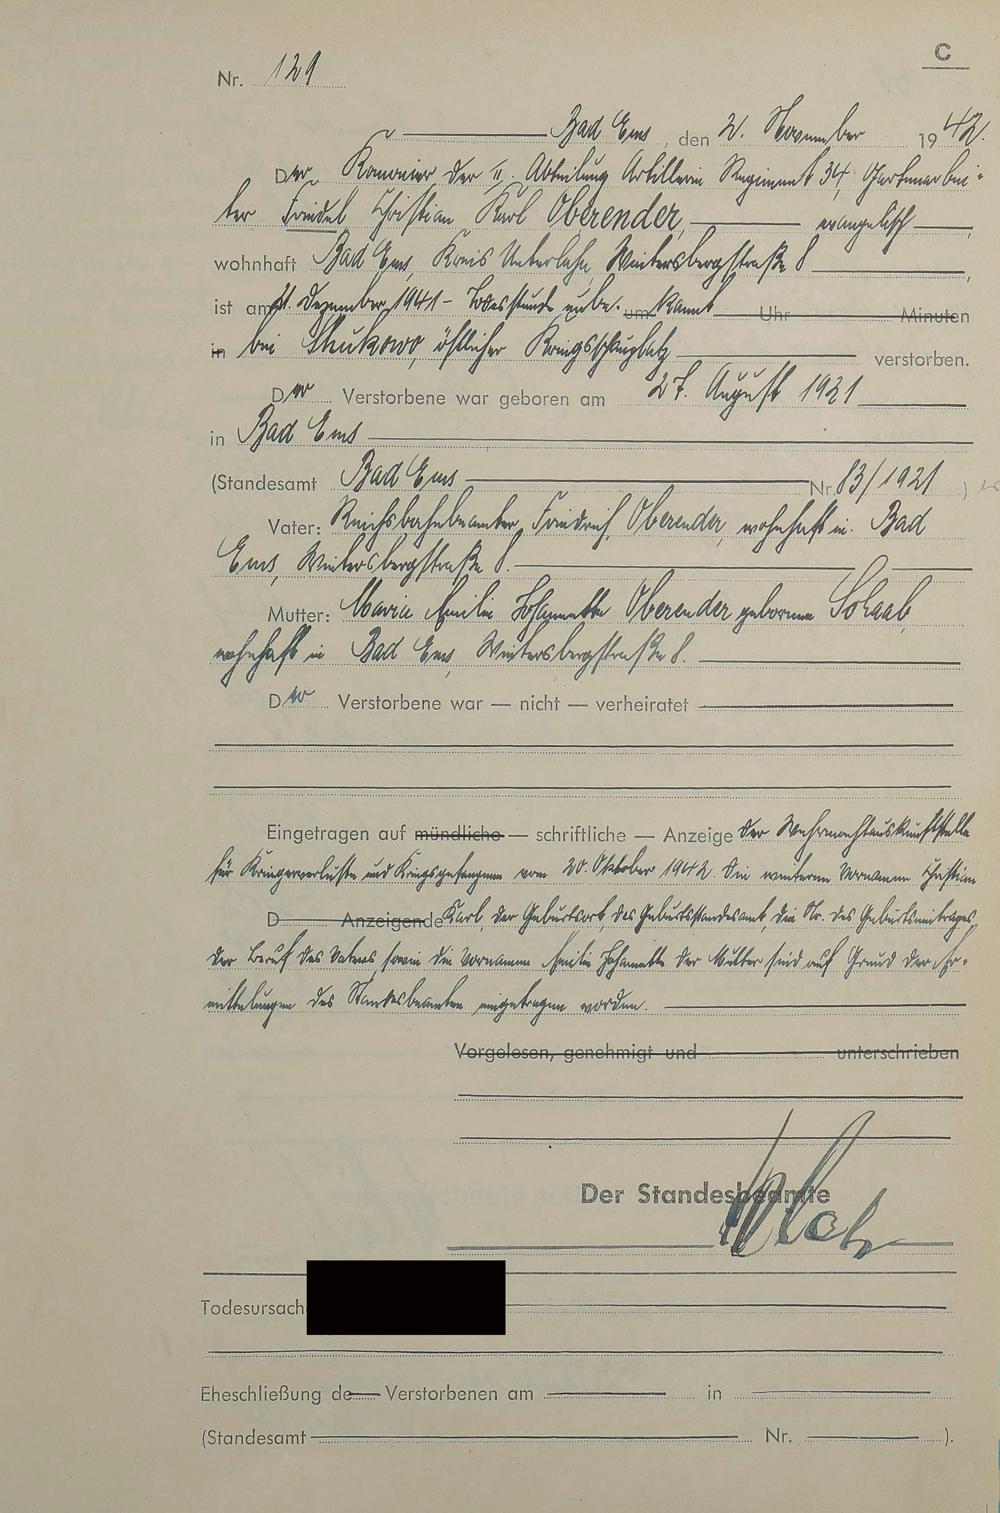 C
Nr. 129
Bad Ems, den 2. November 1942.
Der Kanonier der II. Abteilung Artillerie Regiment 34, Gartenarbei-
ter Friedel Christian Karl Oberender, evangelisch,
wohnhaft Bad Ems, Kreis Unterlahn, Wintersbergstraße 8,
ist am 21. Dezember 1941 - Todesstunde unbe- um kannt Uhr Minuten
in bei Shukowo, östlicher Kriegsschauplatz verstorben.
Der Verstorbene war geboren am 27. August 1921
in Bad Ems
(Standesamt Bad Ems Nr. 83/1921)
Vater: Reichsbahnbeamter Friedrich Oberender, wohnhaft in Bad
Ems, Wintersbergstraße 8.
Mutter: Maria Emilie Johannette Oberender geborene Schaab,
wohnhaft in Bad Ems, Wintersbergstraße 8.
Der Verstorbene war — nicht — verheiratet
Eingetragen auf mündliche — schriftliche — Anzeige der Wehrmachtauskunftstelle
für Kriegerverluste und Kriegsgefangene vom 20. Oktober 1942. Die weiteren Vornamen Christian
D Anzeigende Karl, der Geburtsort, das Geburtsstandesamt, die Nr. des Geburtseintrages,
der Beruf des Vaters, sowie die Vornamen Emilie Johannette der Mutter sind auf Grund der Er-
mittelungen des Standesbeamten eingetragen worden.
Vorgelesen, genehmigt und unterschrieben
Der Standesbeamte
Todesursach
Eheschließung de Verstorbenen am in
(Standesamt Nr. ).